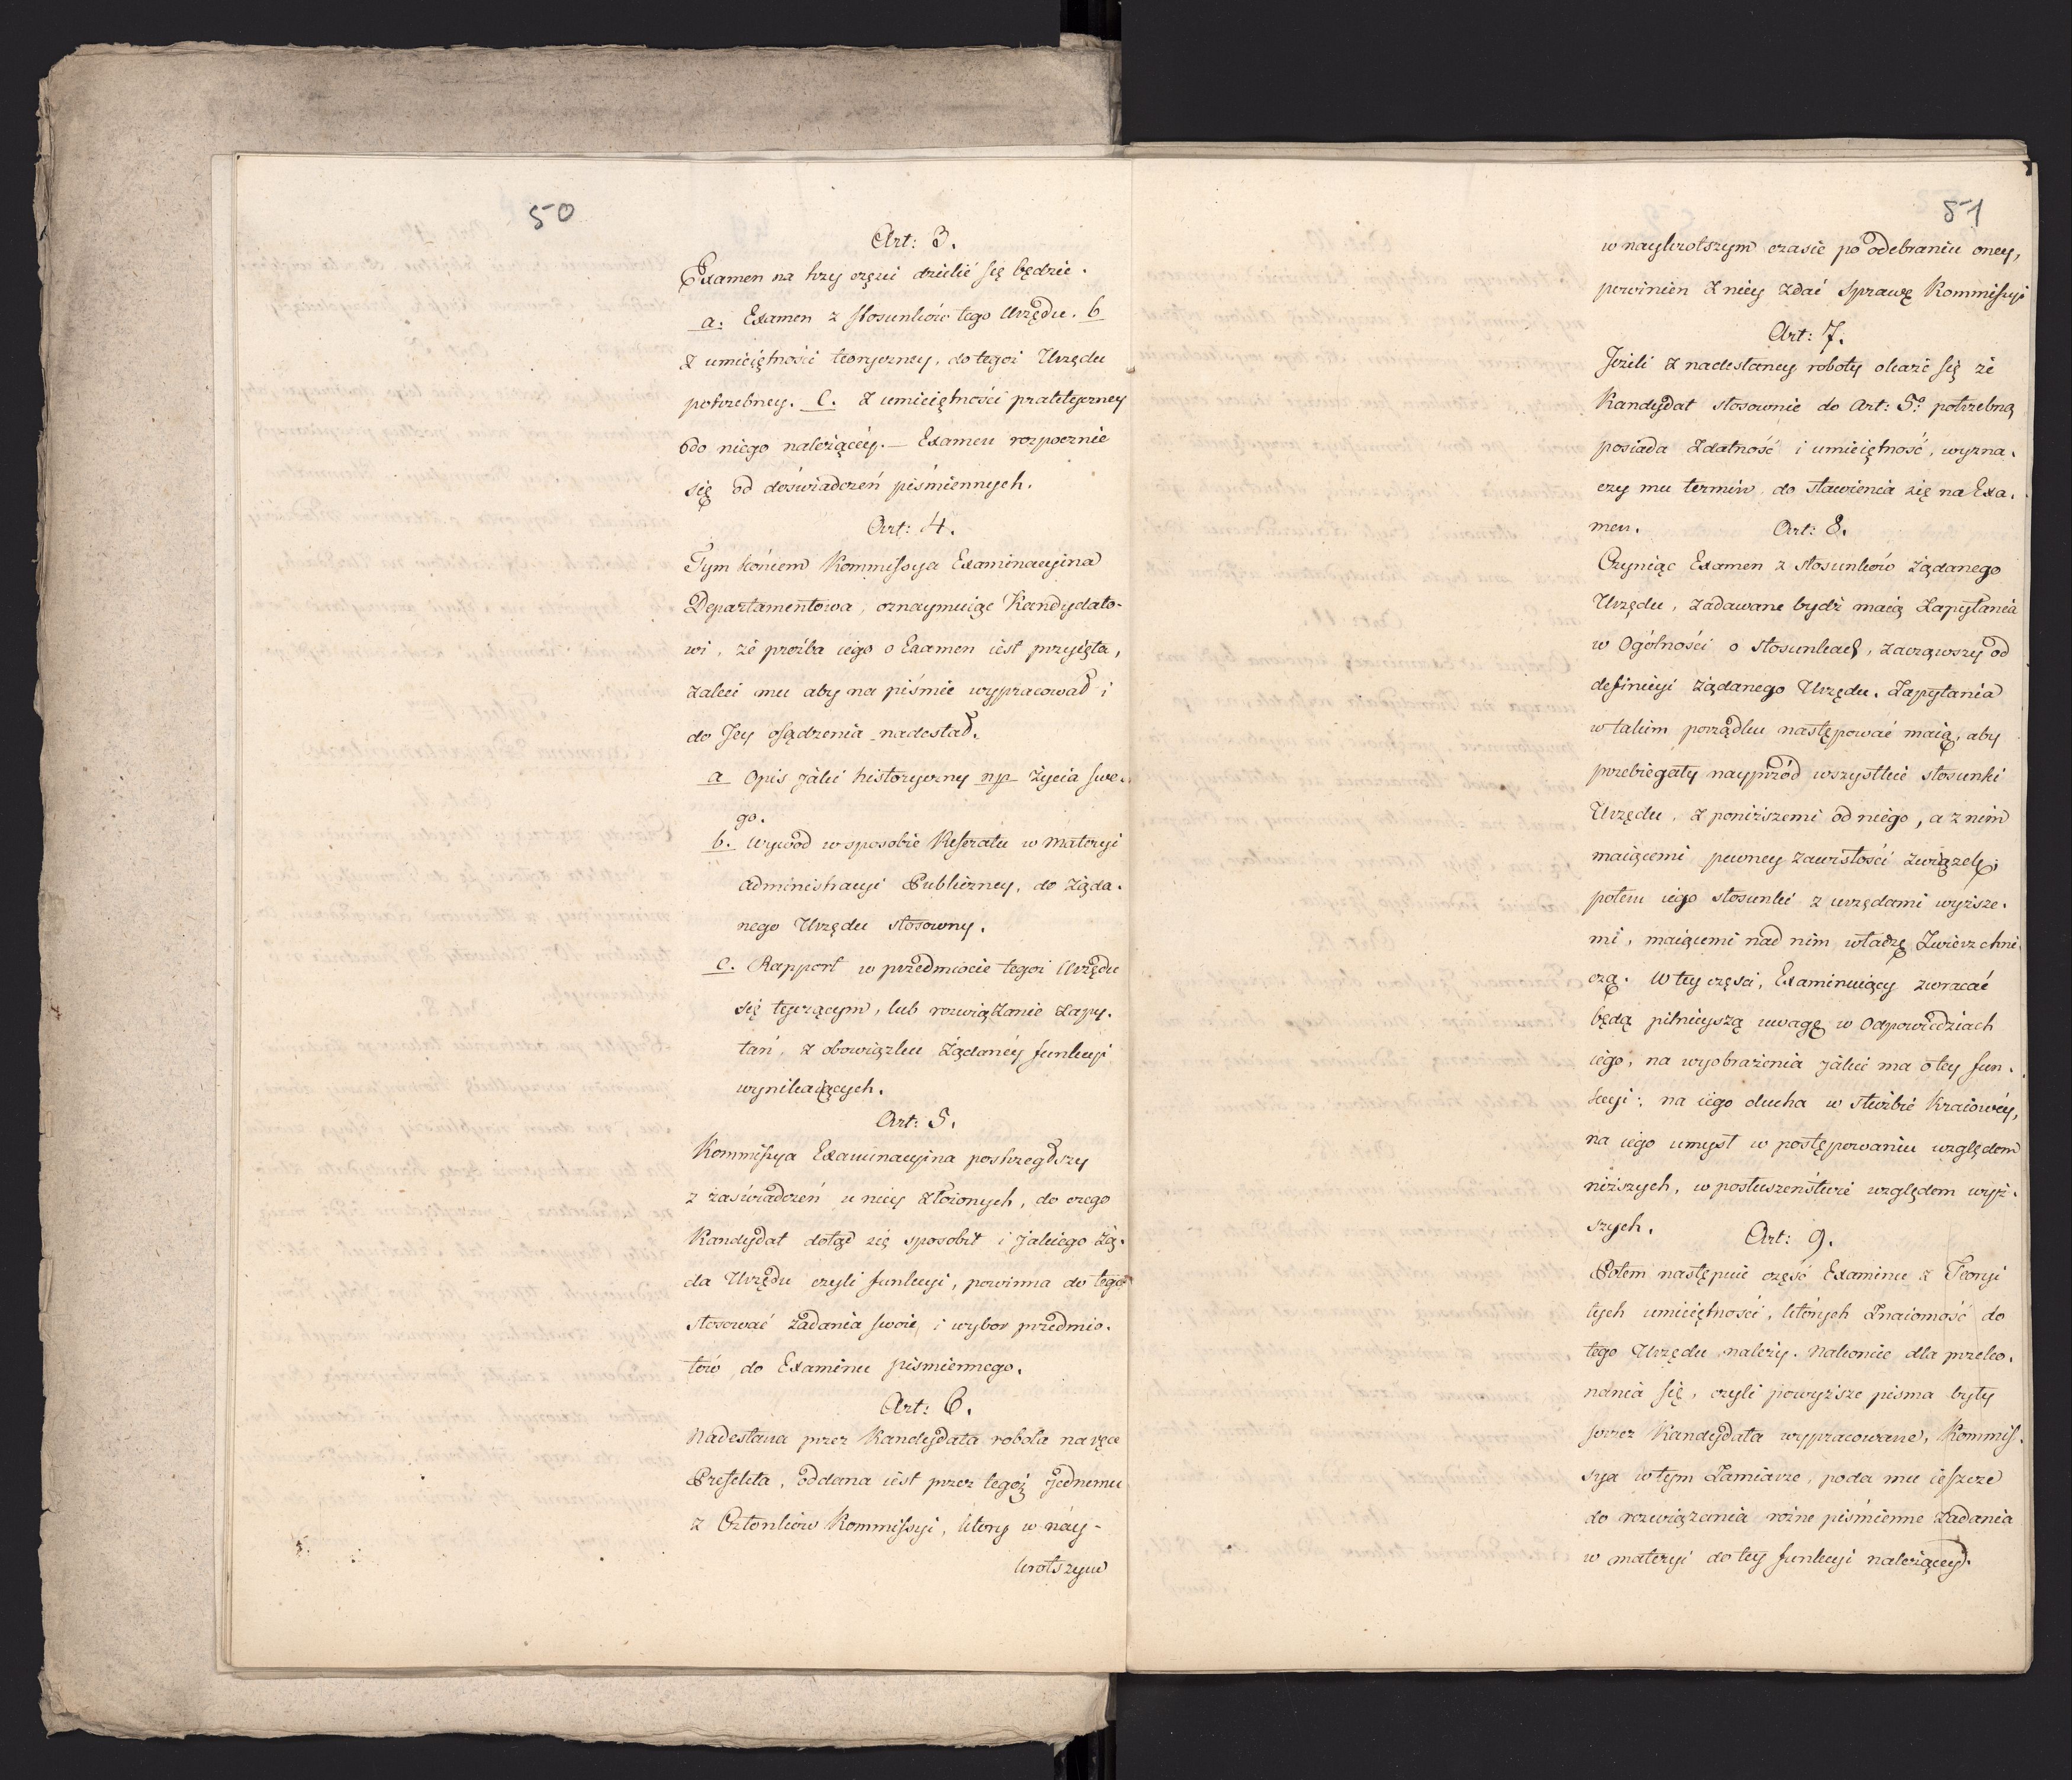 50
Art: 3.
Examen na trzy częsci dzielić się będzie.
a. Examen z stosunków tego Urzędu. b
z umieiętności teoryczney, do tegoż Urzędu
potrzebney. C. z umieiętności praktyczney
do niego należącéy. — Examen rozpocznie
się od doświadczeń piśmiennych.
Art: 4.
Tym końcem Kommissya Examinacyina
Departamentowa, oznaymuiąc Kandydato-
wi, że proźba iego o Examen iest przyięta,
zaleci mu aby na piśmie wypracował i
do Jey osądzenia nadesłał.
a Opis jaki historyczny np życia swe-
go.
b. Wywód w sposobie Referatu w Materyi
administracyi Publiczney, do żąda-
nego Urzędu stosowny.
c. Rapport w przedmiocie tegoż Urzędu
się tyczącym, lub rozwiązanie zapy-
tań, z obowiązku żądanéy funkcyi
wynikaiących.
Art: 5.
Kommissya Examinacyina postrzegłszy
z zaświadczeń u niey złożonych, do czego
Kandydat dotąd się sposobił i jakiego żą-
da Urzędu czyli funkcyi, powinna do tego
stosować zadania swoie, i wybor przedmio-
tów do Examinu pismiennego.
Art: 6.
Nadesłana przez Kandydata robota na ręce
Prefekta, oddana iest przez tegoż jednemu
z Członków Kommissyi, który w náy-
krotszym
51
w naykrotszym czasie po odebraniu oney,
powinien z niey zdać sprawę Kommissyi
Art: 7.
Jeżeli z nadesłaney roboty okaże się że
Kandydat stosownie do Art: 5º potrzebną
posiada zdatność i umieiętność, wyzna-
czy mu termin do stawienia się na Exa-
men. Art: 8.
Czyniąc Examen z stosunków żądanego
Urzędu, zadawane bydź maią zapytania
w Ogólności o stosunkach, zacząwszy od
definicyi żądanego Urzędu. Zapytania
w takim porządku następować maią, aby
przebiegały nayprzód wszystkie stosunki
Urzędu, z poniższemi od niego, a z nim
maiącemi pewney zawisłości związek,
potem iego stosunki z urzędami wyższe-
mi, maiącemi nad nim władzę Zwierzchni-
czą. W tey części, Examinuiący zwracać
będą pilnieyszą uwagę w Odpowiedziach
iego, na wyobrażenia jakie ma o tey fun-
kcyi: na iego ducha w służbie Kraiowéy,
na iego umysł w postępowaniu względem
niższych, w posłuszeństwie względem wyż-
szych. Art: 9.
Potem nastąpuie część Examinu z Teoryi
tych umieiętności, których Znaiomość do
tego Urzędu należy. Nakoniec dla przeko-
nania się, czyli powyższe pisma były
przez Kandydata wypracowane, Kommis-
sya w tym Zamiarze, poda mu ieszcze
do rozwiązania rożne piśmienne zadania
w materyi do tey funkcyi należącey.